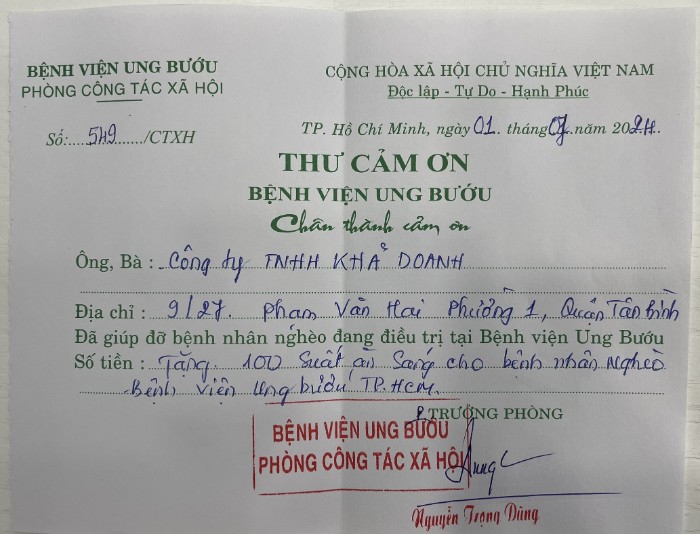 BỆNH VIỆN UNG BƯỚU
PHÒNG CÔNG TÁC XÃ HỘI
CỘNG HÒA XÃ HỘI CHỦ NGHĨA VIỆT NAM
Độc lập - Tự Do - Hạnh Phúc
Số: 549 /CTXH
TP. Hồ Chí Minh, ngày 01 tháng 07 năm 2024.
THƯ CẢM ƠN
BỆNH VIỆN UNG BƯỚU
Chân thành cảm ơn
Ông, Bà : Công ty TNHH KHẢ DOANH
Địa chỉ : 9/27. Phạm Văn Hai Phường 1, Quận Tân Bình
Đã giúp đỡ bệnh nhân nghèo đang điều trị tại Bệnh viện Ung Bướu
Số tiền : Tặng 100 Suất ăn Sáng cho bệnh nhân nghèo
Bệnh viện Ung bướu TP.HCM.
P.TRƯỞNG PHÒNG
BỆNH VIỆN UNG BƯỚU
PHÒNG CÔNG TÁC XÃ HỘI
Nguyễn Trọng Dũng